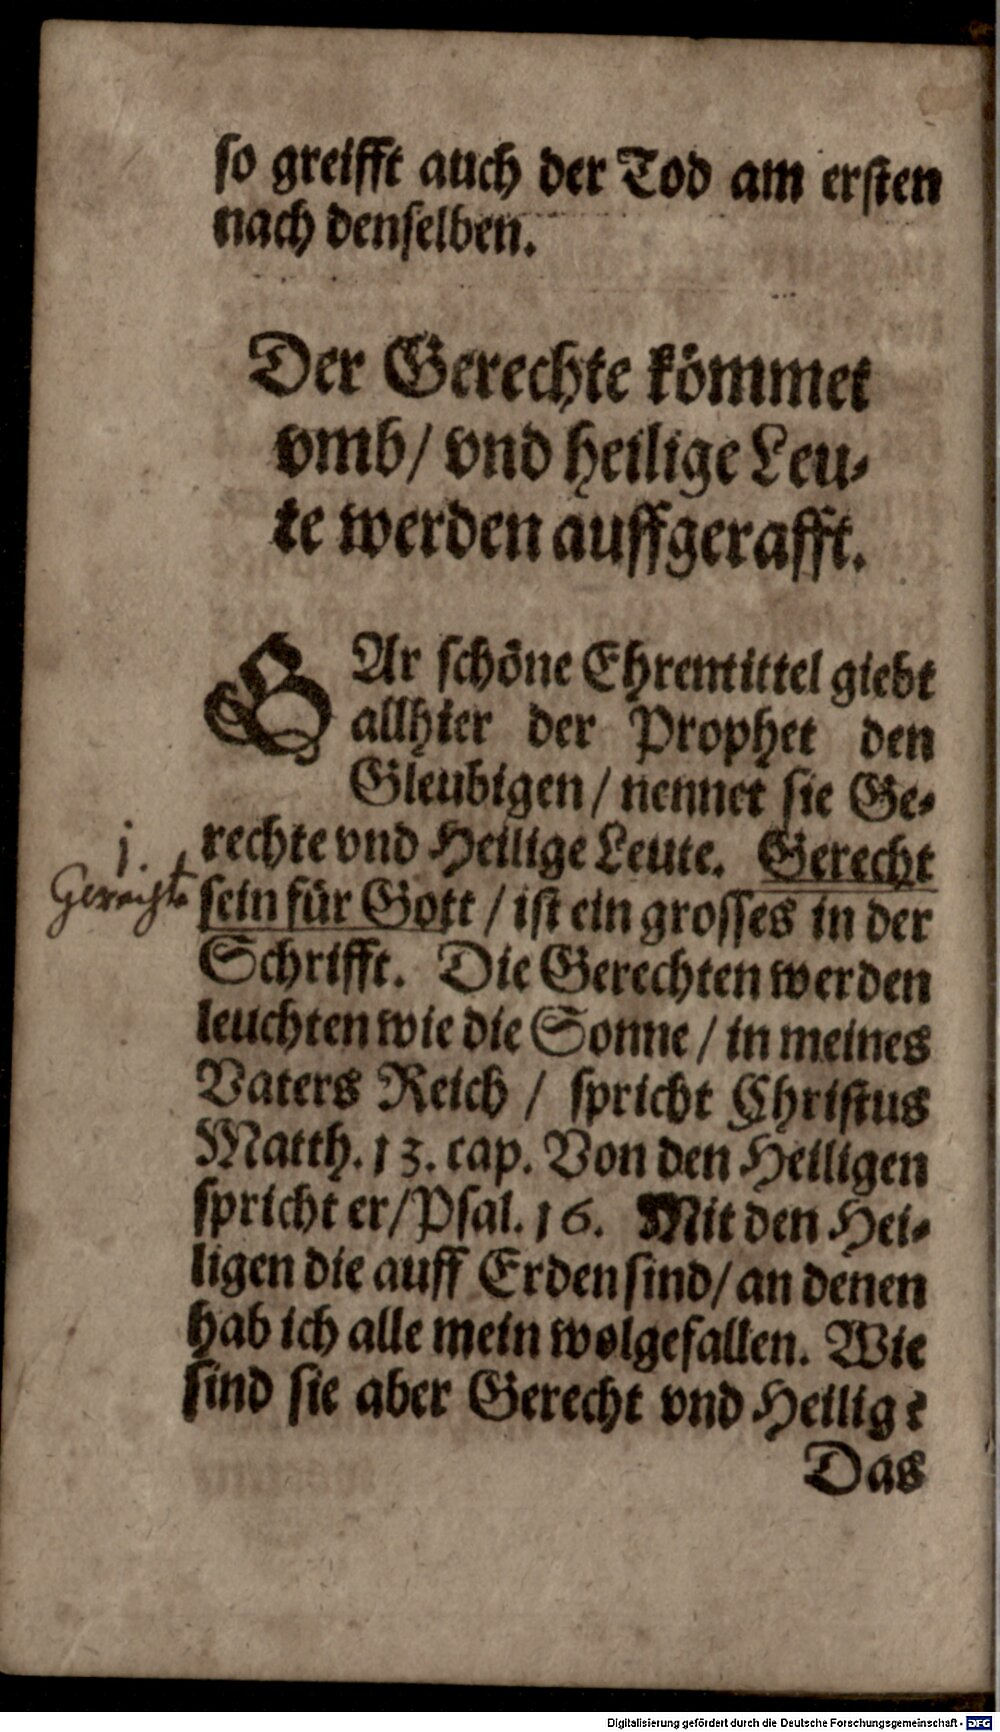 so greifft auch der Tod am ersten
nach denselben.
Der Gerechte kömmet
vmb/ vnd heilige Leu-
te werden auffgerafft.
GAr schöne Ehrentittel giebt
allhier der Prophet den
Gleubigen/ nennet sie Ge-
rechte vnd Heilige Leute. Gerecht
sein für Gott/ ist ein grosses in der
Schrifft. Die Gerechten werden
leuchten wie die Sonne/ in meines
Vaters Reich/ spricht Christus
Matth. 13. cap. Von den Heiligen
spricht er/ Psal. 16. Mit den Hei-
ligen die auff Erden sind/ an denen
hab ich alle mein wolgefallen. Wie
sind sie aber Gerecht vnd Heilig?
Das
1.
Gerechte
Digitalisierung gefördert durch die Deutsche Forschungsgemeinschaft - DFG